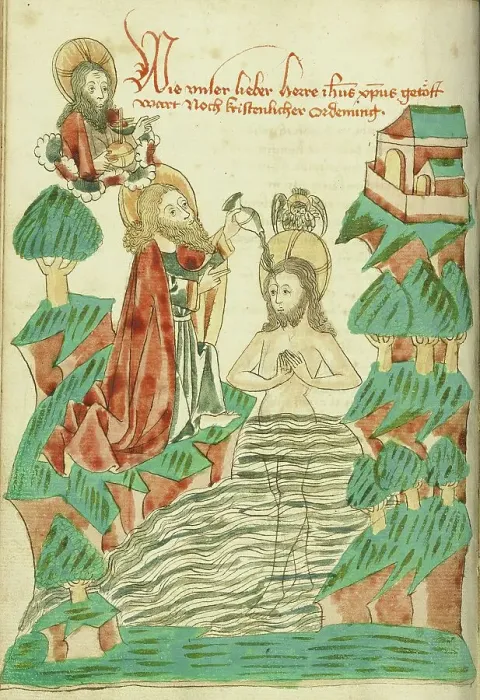 Wie vnser lieber herre ihūs xp̄us getöfft
wart Noch kristenlicher ordenung.